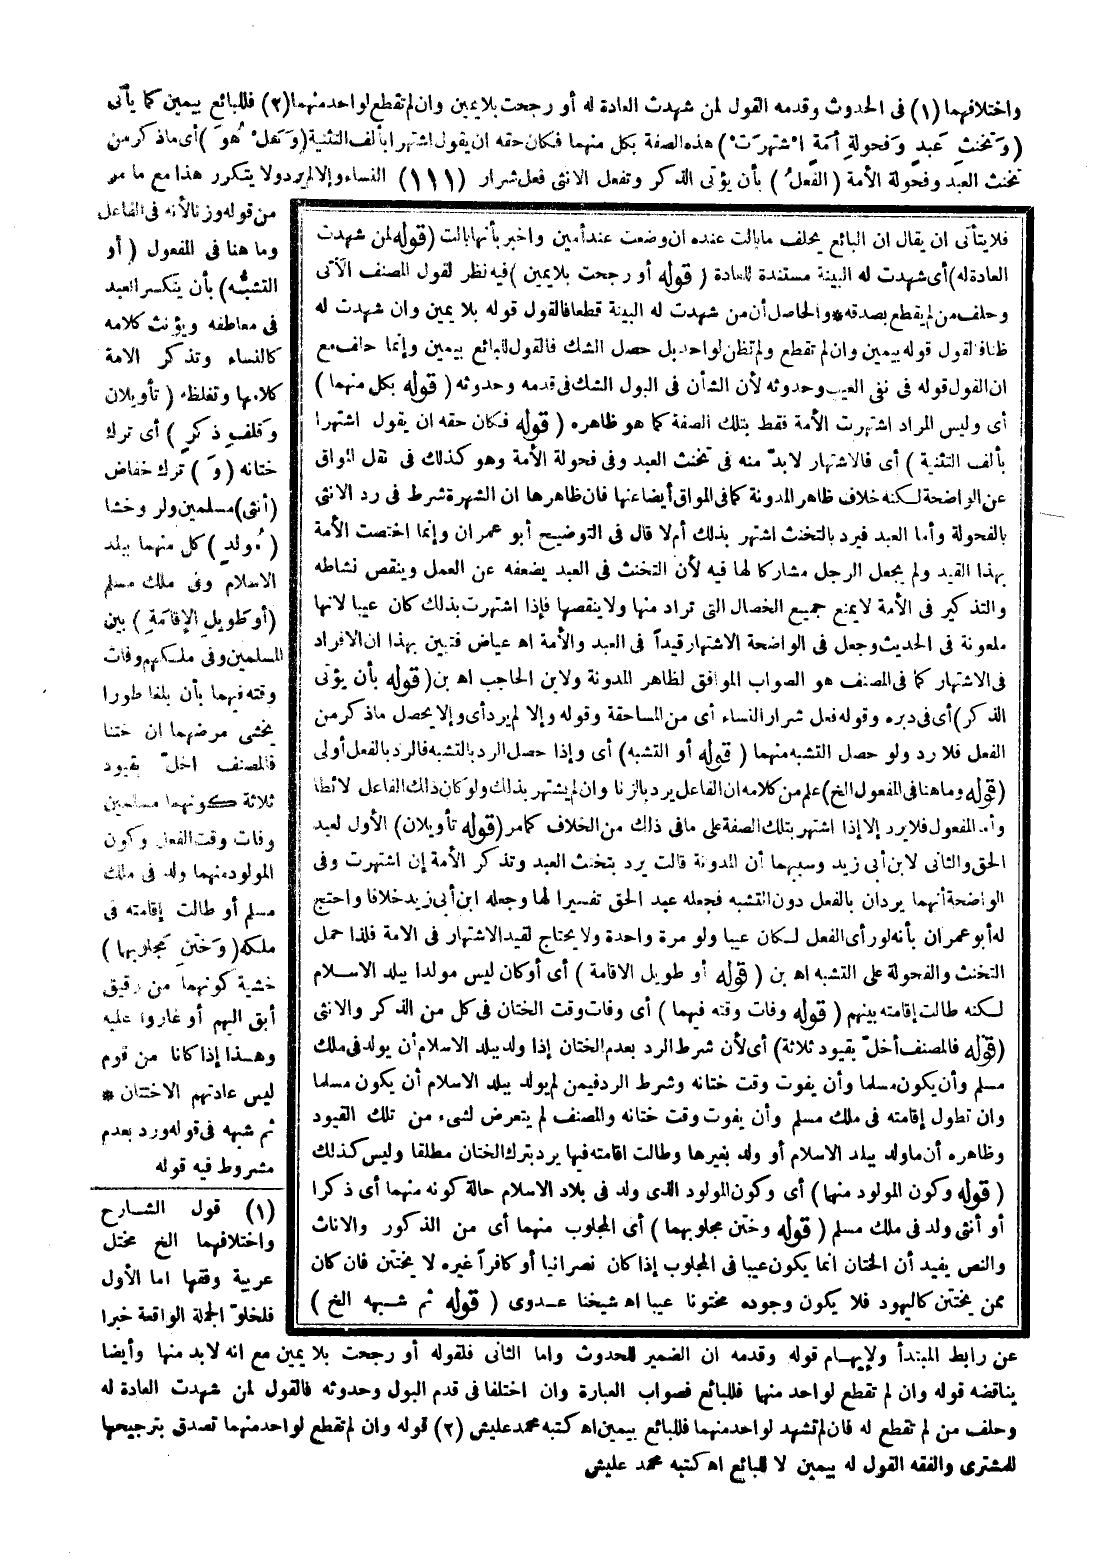 واختلافهما (١) فى الحدوث وقدمه القول لمن شهدت العادة له أو رجحت بلا يمين وان لم تقطع لواحد منهما (٢) فللبائع بيمين كما يأتى
(وَتخنثِ عَبدٍ وَفحولةِ أمَةٍ اشْتهرَتْ) هذه الصفة بكل منهما فكان حقه ان يقول اشتهرا بألف التثنية (وَهَلْ هُوَ) أى ما ذكر من
تخنث العبد وفحولة الأمة (الفعلُ) بأن يؤتى الذكر وتفعل الانثى فعل شرار (١١١) النساء وإلا لم يرد ولا يتكرر هذا مع ما مر
من قوله وزنا لأنه فى الفاعل
وما هنا فى المفعول (أو
التشبُّه) بأن يتكسر العبد
فى معاطفه ويؤنث كلامه
كالنساء وتذكر الامة
كلامها وتغلظه (تأويلان
وَقلفِ ذكرٍ) أى ترك
ختانه (وَ) ترك خفاض
(أنثى) مسلمين ولو وخشا
(مُولدٍ) كل منهما ببلد
الاسلام وفى ملك مسلم
(أو طويلِ الإقامَةِ) بين
المسلمين وفى ملكهم وفات
وقته فيهما بأن بلغا طورا
يخشى مرضهما ان ختنا
فالمصنف اخلّ بقيود
ثلاثة كونهما مسلمين
وفات وقت الفعل وكون
المولود منهما ولد فى ملك
مسلم أو طالت إقامته فى
ملكه (وَختنِ مجلوبهما)
خشية كونهما من رقيق
أبق اليهم أو غاروا عليه
وهذا إذا كانا من قوم
ليس عادتهم الاختتان *
ثم شبه فى قوله ورد بعدم
مشروط فيه قوله
فلا يتأتى ان يقال ان البائع يحلف ما بالت عنده ان وضعت عند أمين واخبر بأنها بالت (قوله لمن شهدت
العادة له) أى شهدت له البينة مستندة للعادة (قوله أو رجحت بلا يمين) فيه نظر لقول المصنف الآتى
وحلف من لم يقطع بصدقه * والحاصل أن من شهدت له البينة قطعا فالقول قوله بلا يمين وان شهدت له
ظنا فالقول قوله بيمين وان لم تقطع ولم تظن لواحد بل حصل الشك فالقول للبائع بيمين وإنما حلف مع
ان القول قوله فى نفى العيب وحدوثه لأن الشأن فى البول الشك فى قدمه وحدوثه (قوله بكل منهما)
أى وليس المراد اشتهرت الأمة فقط بتلك الصفة كما هو ظاهره (قوله فكان حقه ان يقول اشتهرا
بألف التثنية) أى فالاشتهار لا بدّ منه فى تخنث العبد وفى فحولة الأمة وهو كذلك فى نقل المواق
عن الواضحة لكنه خلاف ظاهر المدونة كما فى المواق أيضا عنها فان ظاهرها ان الشهرة شرط فى رد الانثى
بالفحولة وأما العبد فيرد بالتخنث اشتهر بذلك أم لا قال فى التوضيح أبو عمران وإنما اختصت الأمة
بهذا القيد ولم يجعل الرجل مشاركا لها فيه لأن التخنث فى العبد يضعفه عن العمل وينقص نشاطه
والتذكير فى الأمة لا يمنع جميع الخصال التى تراد منها ولا ينقصها فإذا اشتهرت بذلك كان عيبا لانها
ملعونة فى الحديث وجعل فى الواضحة الاشتهار قيداً فى العبد والأمة اه عياض فتبين بهذا ان الافراد
فى الاشتهار كما فى المصنف هو الصواب الموافق لظاهر المدونة ولابن الحاجب اه بن (قوله بأن يؤتى
الذكر) أى فى دبره وقوله فعل شرار النساء أى من المساحقة وقوله وإلا لم يرد أى وإلا يحصل ما ذكر من
الفعل فلا رد ولو حصل التشبه منهما (قوله أو التشبه) أى وإذا حصل الرد بالتشبه فالرد بالفعل أولى
(قوله وما هنا فى المفعول الخ) علم من كلامه ان الفاعل يرد بالزنا وان لم يشتهر بذلك ولو كان ذلك الفاعل لائطا
وأما المفعول فلا يرد إلا إذا اشتهر بتلك الصفة على ما فى ذلك من الخلاف كما مر (قوله تأويلان) الأول لعبد
الحق والثانى لابن أبى زيد وسببهما أن المدونة قالت يرد بتخنث العبد وتذكر الأمة إن اشتهرت وفى
الواضحة أنهما يردان بالفعل دون التشبه فجعله عبد الحق تفسيرا لها وجعله ابن أبى زيد خلافا واحتج
له أبو عمران بأنه لو رأى الفعل لكان عيبا ولو مرة واحدة ولا يحتاج لقيد الاشتهار فى الامة فلذا حمل
التخنث والفحولة على التشبه اه بن (قوله أو طويل الاقامة) أى أو كان ليس مولدا ببلد الاسلام
لكنه طالت إقامته بينهم (قوله وفات وقته فيهما) أى وفات وقت الختان فى كل من الذكر والانثى
(قوله فالمصنف أخلّ بقيود ثلاثة) أى لأن شرط الرد بعدم الختان إذا ولد ببلد الاسلام أن يولد فى ملك
مسلم وأن يكون مسلما وأن يفوت وقت ختانه وشرط الرد فيمن لم يولد ببلد الاسلام أن يكون مسلما
وان تطول إقامته فى ملك مسلم وأن يفوت وقت ختانه والمصنف لم يتعرض لشىء من تلك القيود
وظاهره أن ما ولد ببلد الاسلام أو ولد بغيرها وطالت اقامته فيها يرد بترك الختان مطلقا وليس كذلك
(قوله وكون المولود منهما) أى وكون المولود الذى ولد فى بلاد الاسلام حالة كونه منهما أى ذكرا
أو أنثى ولد فى ملك مسلم (قوله وختن مجلوبهما) أى المجلوب منهما أى من الذكور والاناث
والنص يفيد أن الختان انما يكون عيبا فى المجلوب إذا كان نصرانيا أو كافراً غيره لا يختتن فان كان
ممن يختتن كاليهود فلا يكون وجوده مختونا عيبا اه شيخنا عدوى (قوله ثم شبه الخ)
(١) قول الشارح
واختلافهما الخ مختل
عربية وفقها اما الأول
فلخلوّ الجملة الواقعة خبرا
عن رابط المبتدأ ولإيهام قوله وقدمه ان الضمير للحدوث واما الثانى فلقوله أو رجحت بلا يمين مع انه لابد منها وأيضا
يناقضه قوله وان لم تقطع لواحد منها فللبائع فصواب العبارة وان اختلفا فى قدم البول وحدوثه فالقول لمن شهدت العادة له
وحلف من لم تقطع له فان لم تشهد لواحد منهما فللبائع بيمين اه كتبه محمد عليش (٢) قوله وان لم تقطع لواحد منهما تصدق بترجيحها
للمشترى والفقه القول له بيمين لا للبائع اه كتبه محمد عليش